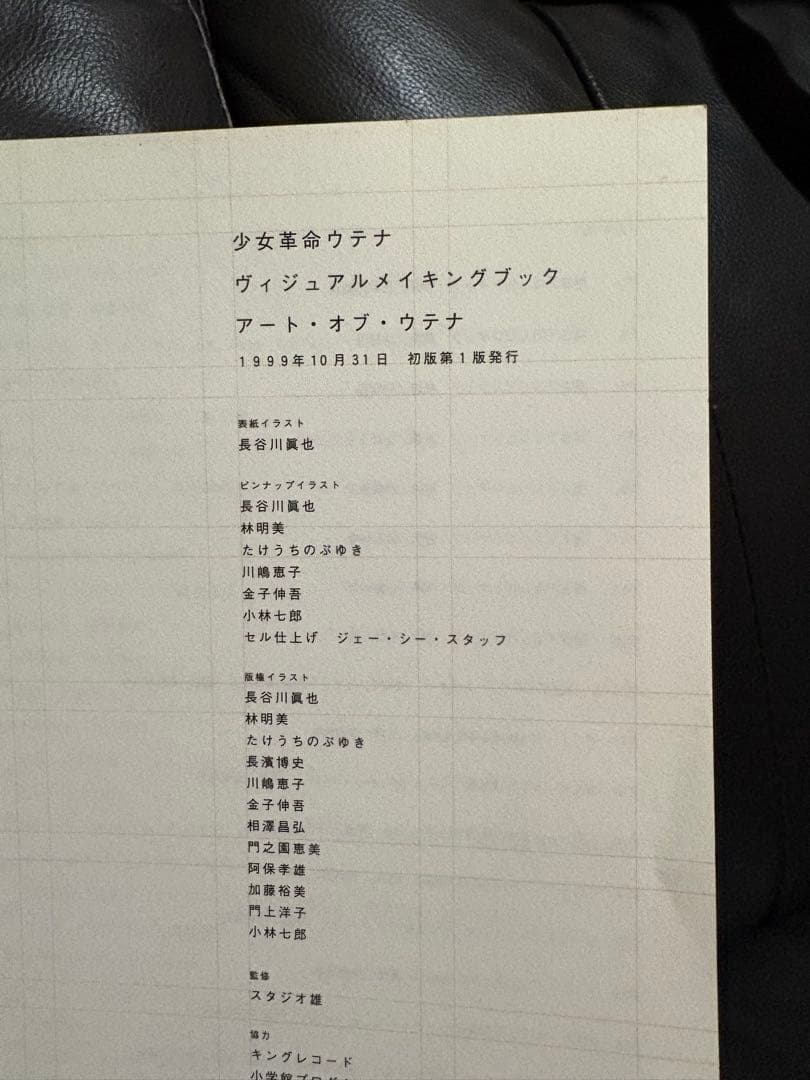 少女革命ウテナ
ヴィジュアルメイキングブック
アート・オブ・ウテナ
1999年10月31日　初版第1版発行
表紙イラスト
長谷川眞也
ピンナップイラスト
長谷川眞也
林明美
たけうちのぶゆき
川嶋恵子
金子伸吾
小林七郎
セル仕上げ　ジェー・シー・スタッフ
版権イラスト
長谷川眞也
林明美
たけうちのぶゆき
長濱博史
川嶋恵子
金子伸吾
相澤昌弘
門之園恵美
阿保孝雄
加藤裕美
門上洋子
小林七郎
監修
スタジオ雄
協力
キングレコード
小学館プロダ